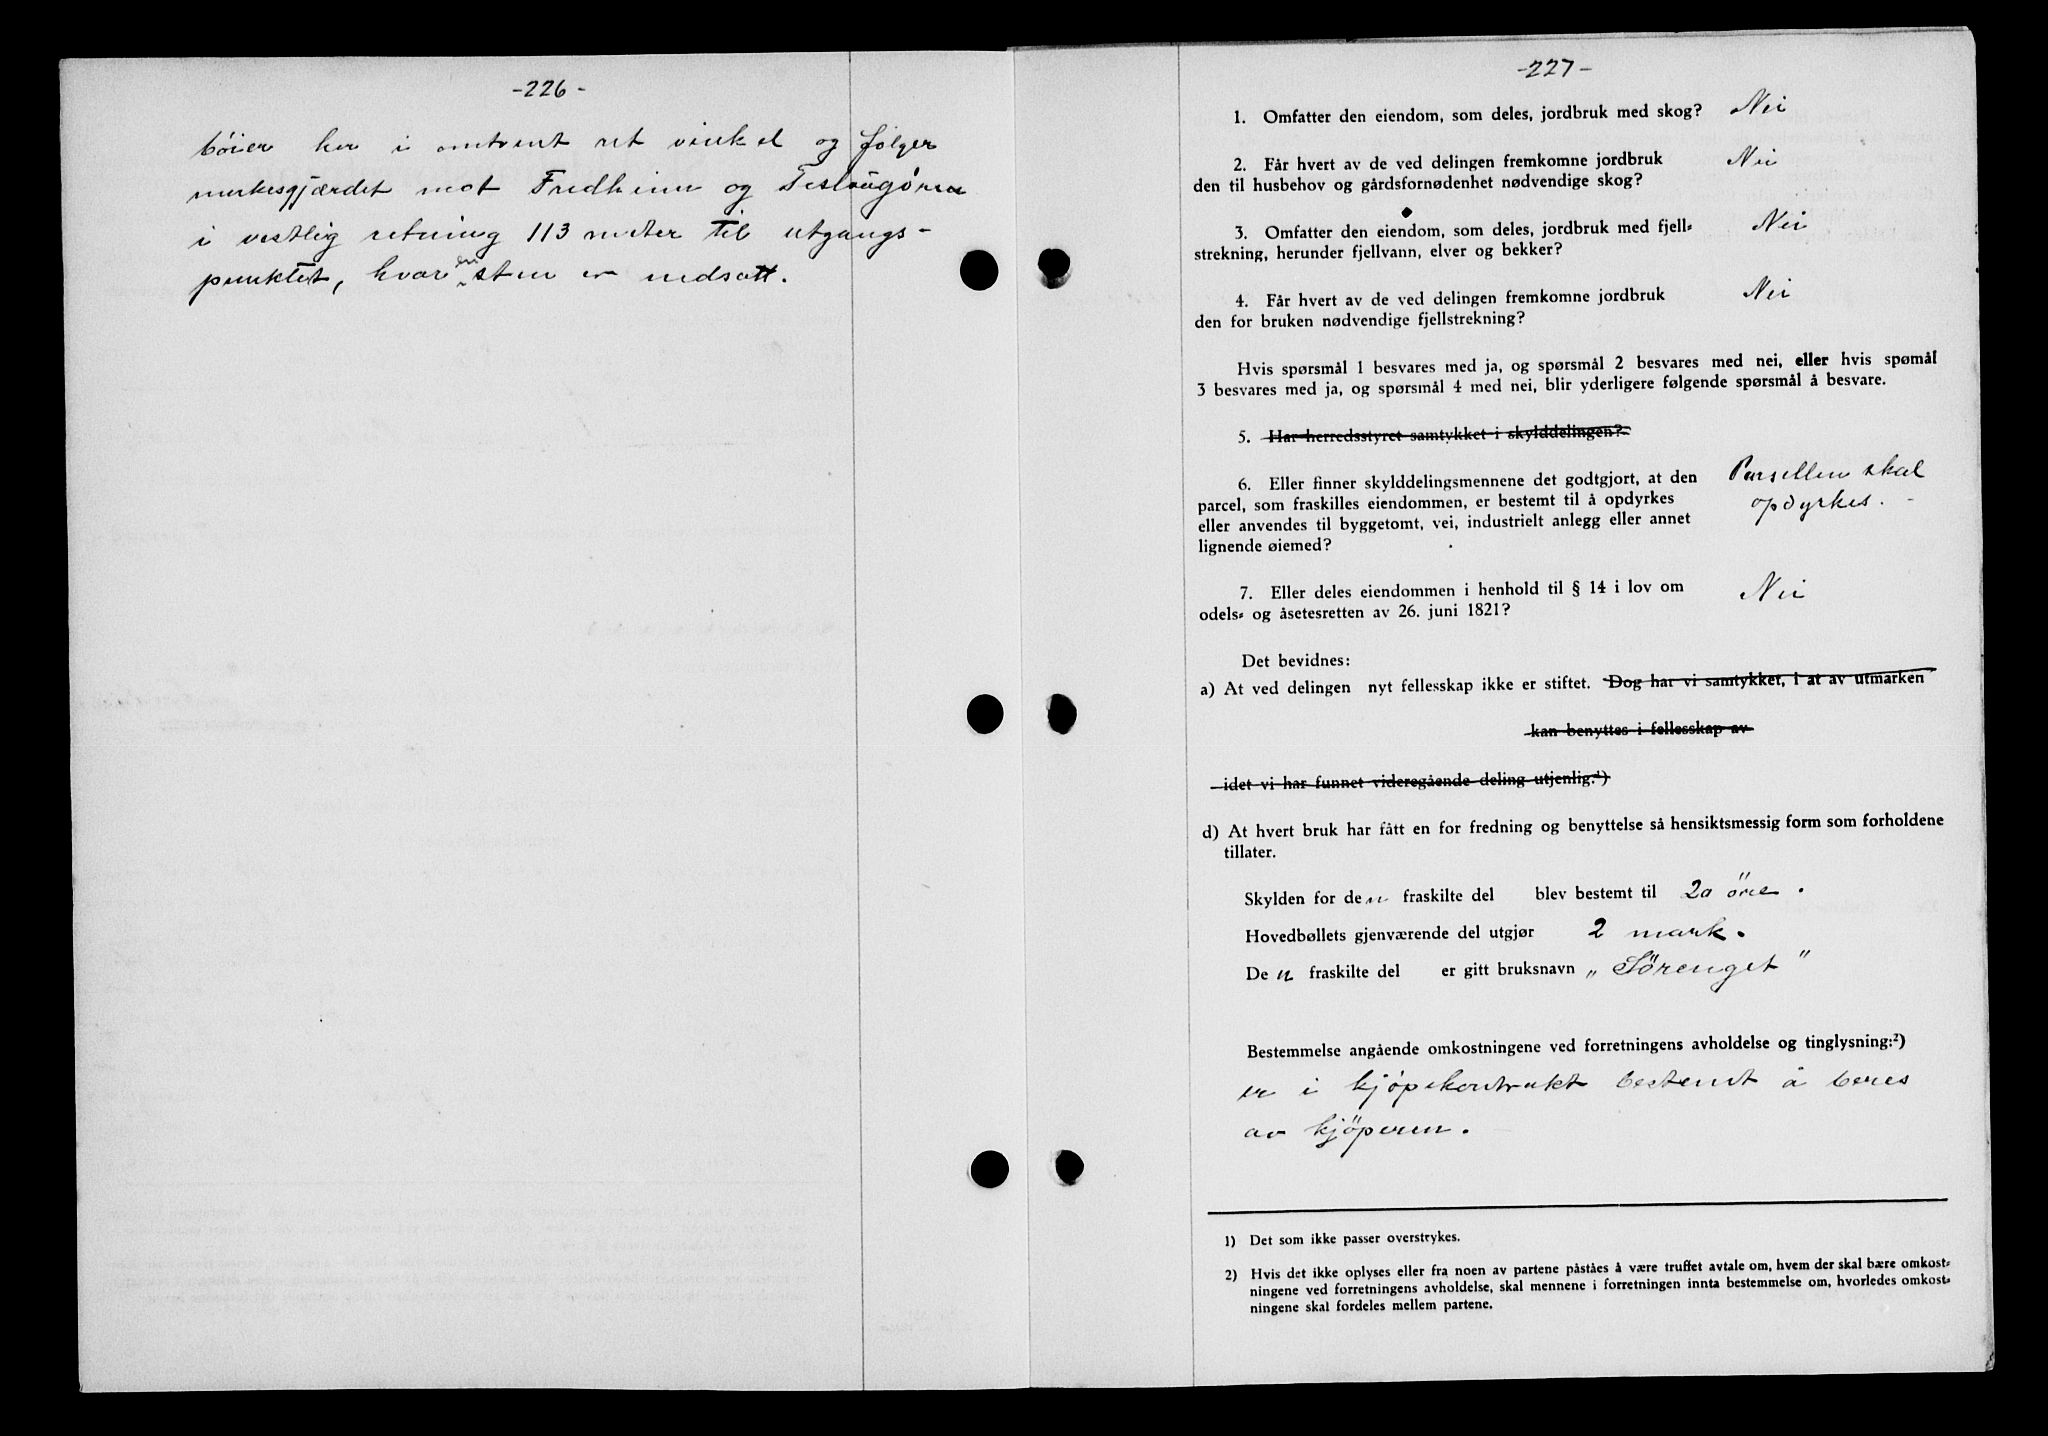 -226-
bóier her i omtrent ret vinkel og følger
merkesgjærdet mot Fredheim og
i vestlig retning 113 meter til utgangs-
punktet, hvor en sten er nedsatt.
-227-
1. Omfatter den eiendom, som deles, jordbruk med skog? Nei
2. Får hvert av de ved delingen fremkomne jordbruk Nei
den til husbehov og gårdsfornødenhet nødvendige skog?
3. Omfatter den eiendom, som deles, jordbruk med fjell- Nei
strekning, herunder fjellvann, elver og bekker?
4. Får hvert av de ved delingen fremkomne jordbruk Nei
den for bruken nødvendige fjellstrekning?
Hvis spørsmål 1 besvares med ja, og spørsmål 2 besvares med nei, eller hvis spømål
3 besvares med ja, og spørsmål 4 med nei, blir yderligere følgende spørsmål å besvare.
5. Har herredsstyret samtykket i skylddelingen?
6. Eller finner skylddelingsmennene det godtgjort, at den Parsellen skal
parcel, som fraskilles eiendommen, er bestemt til å opdyrkes opdyrkes.-
eller anvendes til byggetomt, vei, industrielt anlegg eller annet
lignende øiemed?
7. Eller deles eiendommen i henhold til § 14 i lov om Nei
odels- og åsetesretten av 26. juni 1821?
Det bevidnes:
a) At ved delingen nyt fellesskap ikke er stiftet. Dog har vi samtykket, i at av utmarken
kan benyttes i fellesskap av
idet vi har funnet videregående deling utjenlig.¹)
d) At hvert bruk har fått en for fredning og benyttelse så hensiktsmessig form som forholdene
tillater.
Skylden for den fraskilte del blev bestemt til 20 öre.
Hovedbøllets gjenværende del utgjør 2 mark.
Den fraskilte del er gitt bruksnavn „Sörenget"
Bestemmelse angående omkostningene ved forretningens avholdelse og tinglysning:²)
er i kjöpekontrakt bestemt å beres
av kjöperen.
1) Det som ikke passer overstrykes.
2) Hvis det ikke oplyses eller fra noen av partene påståes å være truffet avtale om, hvem der skal bære omkost-
ningene ved forretningens avholdelse, skal mennene i forretningen innta bestemmelse om, hvorledes omkost-
ningene skal fordeles mellem partene.